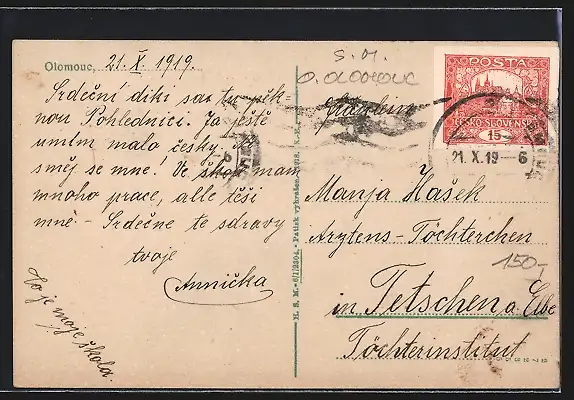 Olomouc, 21. X. 1919.
Srdeční diki za tu pěk-
nou Pohlednici. Ja ještě
umim malo česky.
směj se mne! Ve škole mam
mnoho prace, alle těši
mně - Srdečne te zdravy
tvoje
Annička
To je moje škola.
S. M.
O. OLOMOUC
POSTA
ČESKO-SLOVENSKÁ
15
21. X. 19 - 6
Manja Hašek
Arztens-Töchterchen
in Tetschen a. Elbe
Töchterinstitut
150,-